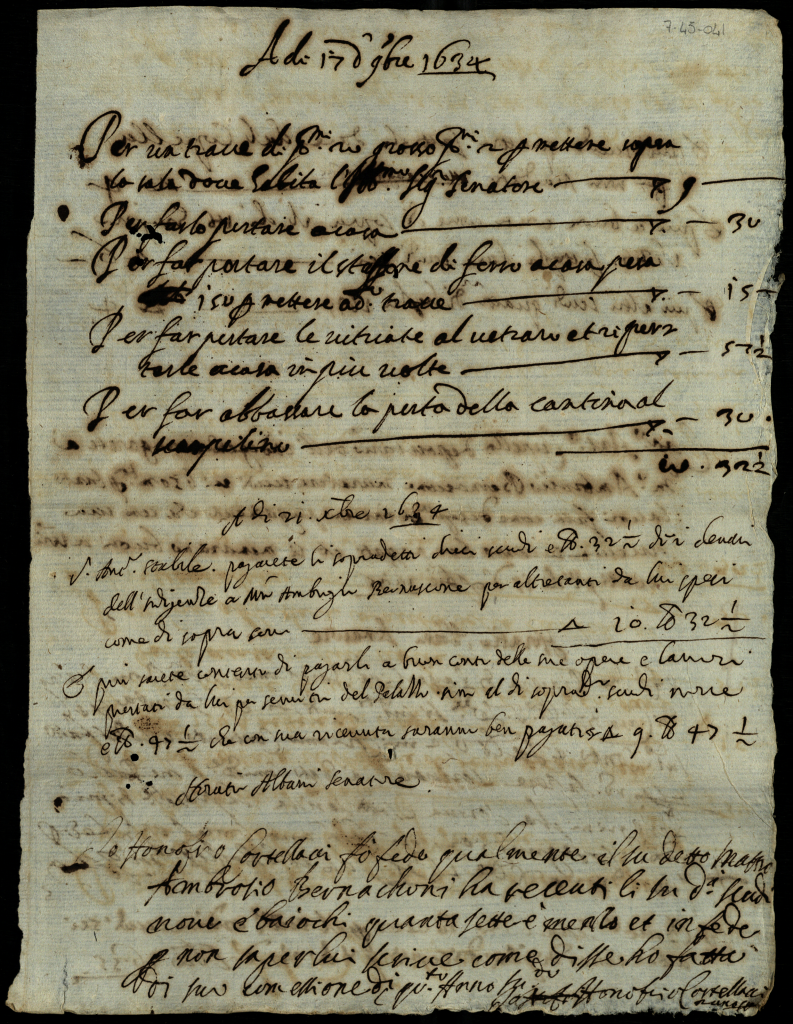 7-45-041
A di 17 d 9bre 1634
Per un traue di p.mi 20 grosso p.mi 2 p mettere sopra
la sala doue habita l' Ill.mo Sig. Senatore — 9 —
Per farlo portare a casa — 30
Per far portare il staffone di ferro a casa pesa
150 p mettere a d.o traue — 15
Per far portare le uitriate al uetraro et ripor
tarle a casa in piu uolte — 57½
Per far abbassare la porta della cantina al
scarpilino — 30
10 . 32½
A di 21 xbre 1634
S. Ant.o Stabile. pagarete li sopradetti dieci scudi e b. 32½ di denari
dell' a Mro Ambrogio Bernascone per altretanti da lui spesi
come di sopra sono — 10. b 32½
E piu sarete contento di pagarli a buon conto delle sue opere e lauori
portati da lui per seruitio del Palazzo sino al di soprad.o scudi noue
e b. 47½ che con sua riceuuta saranno ben pagati 9. b 47½
Horatio Albani Senatore
Io Honofrio Cortellaci fo fede qualmente il su detto Mastro
Ambrosio Bernaschoni ha receuti li su d.i scudi
noue e baiochi quaranta sette e mezzo et in fede
p non saper lui scriue come disse ho fatta
di suo comessione di qu.to Anno et di
Honofrio Cortellaci